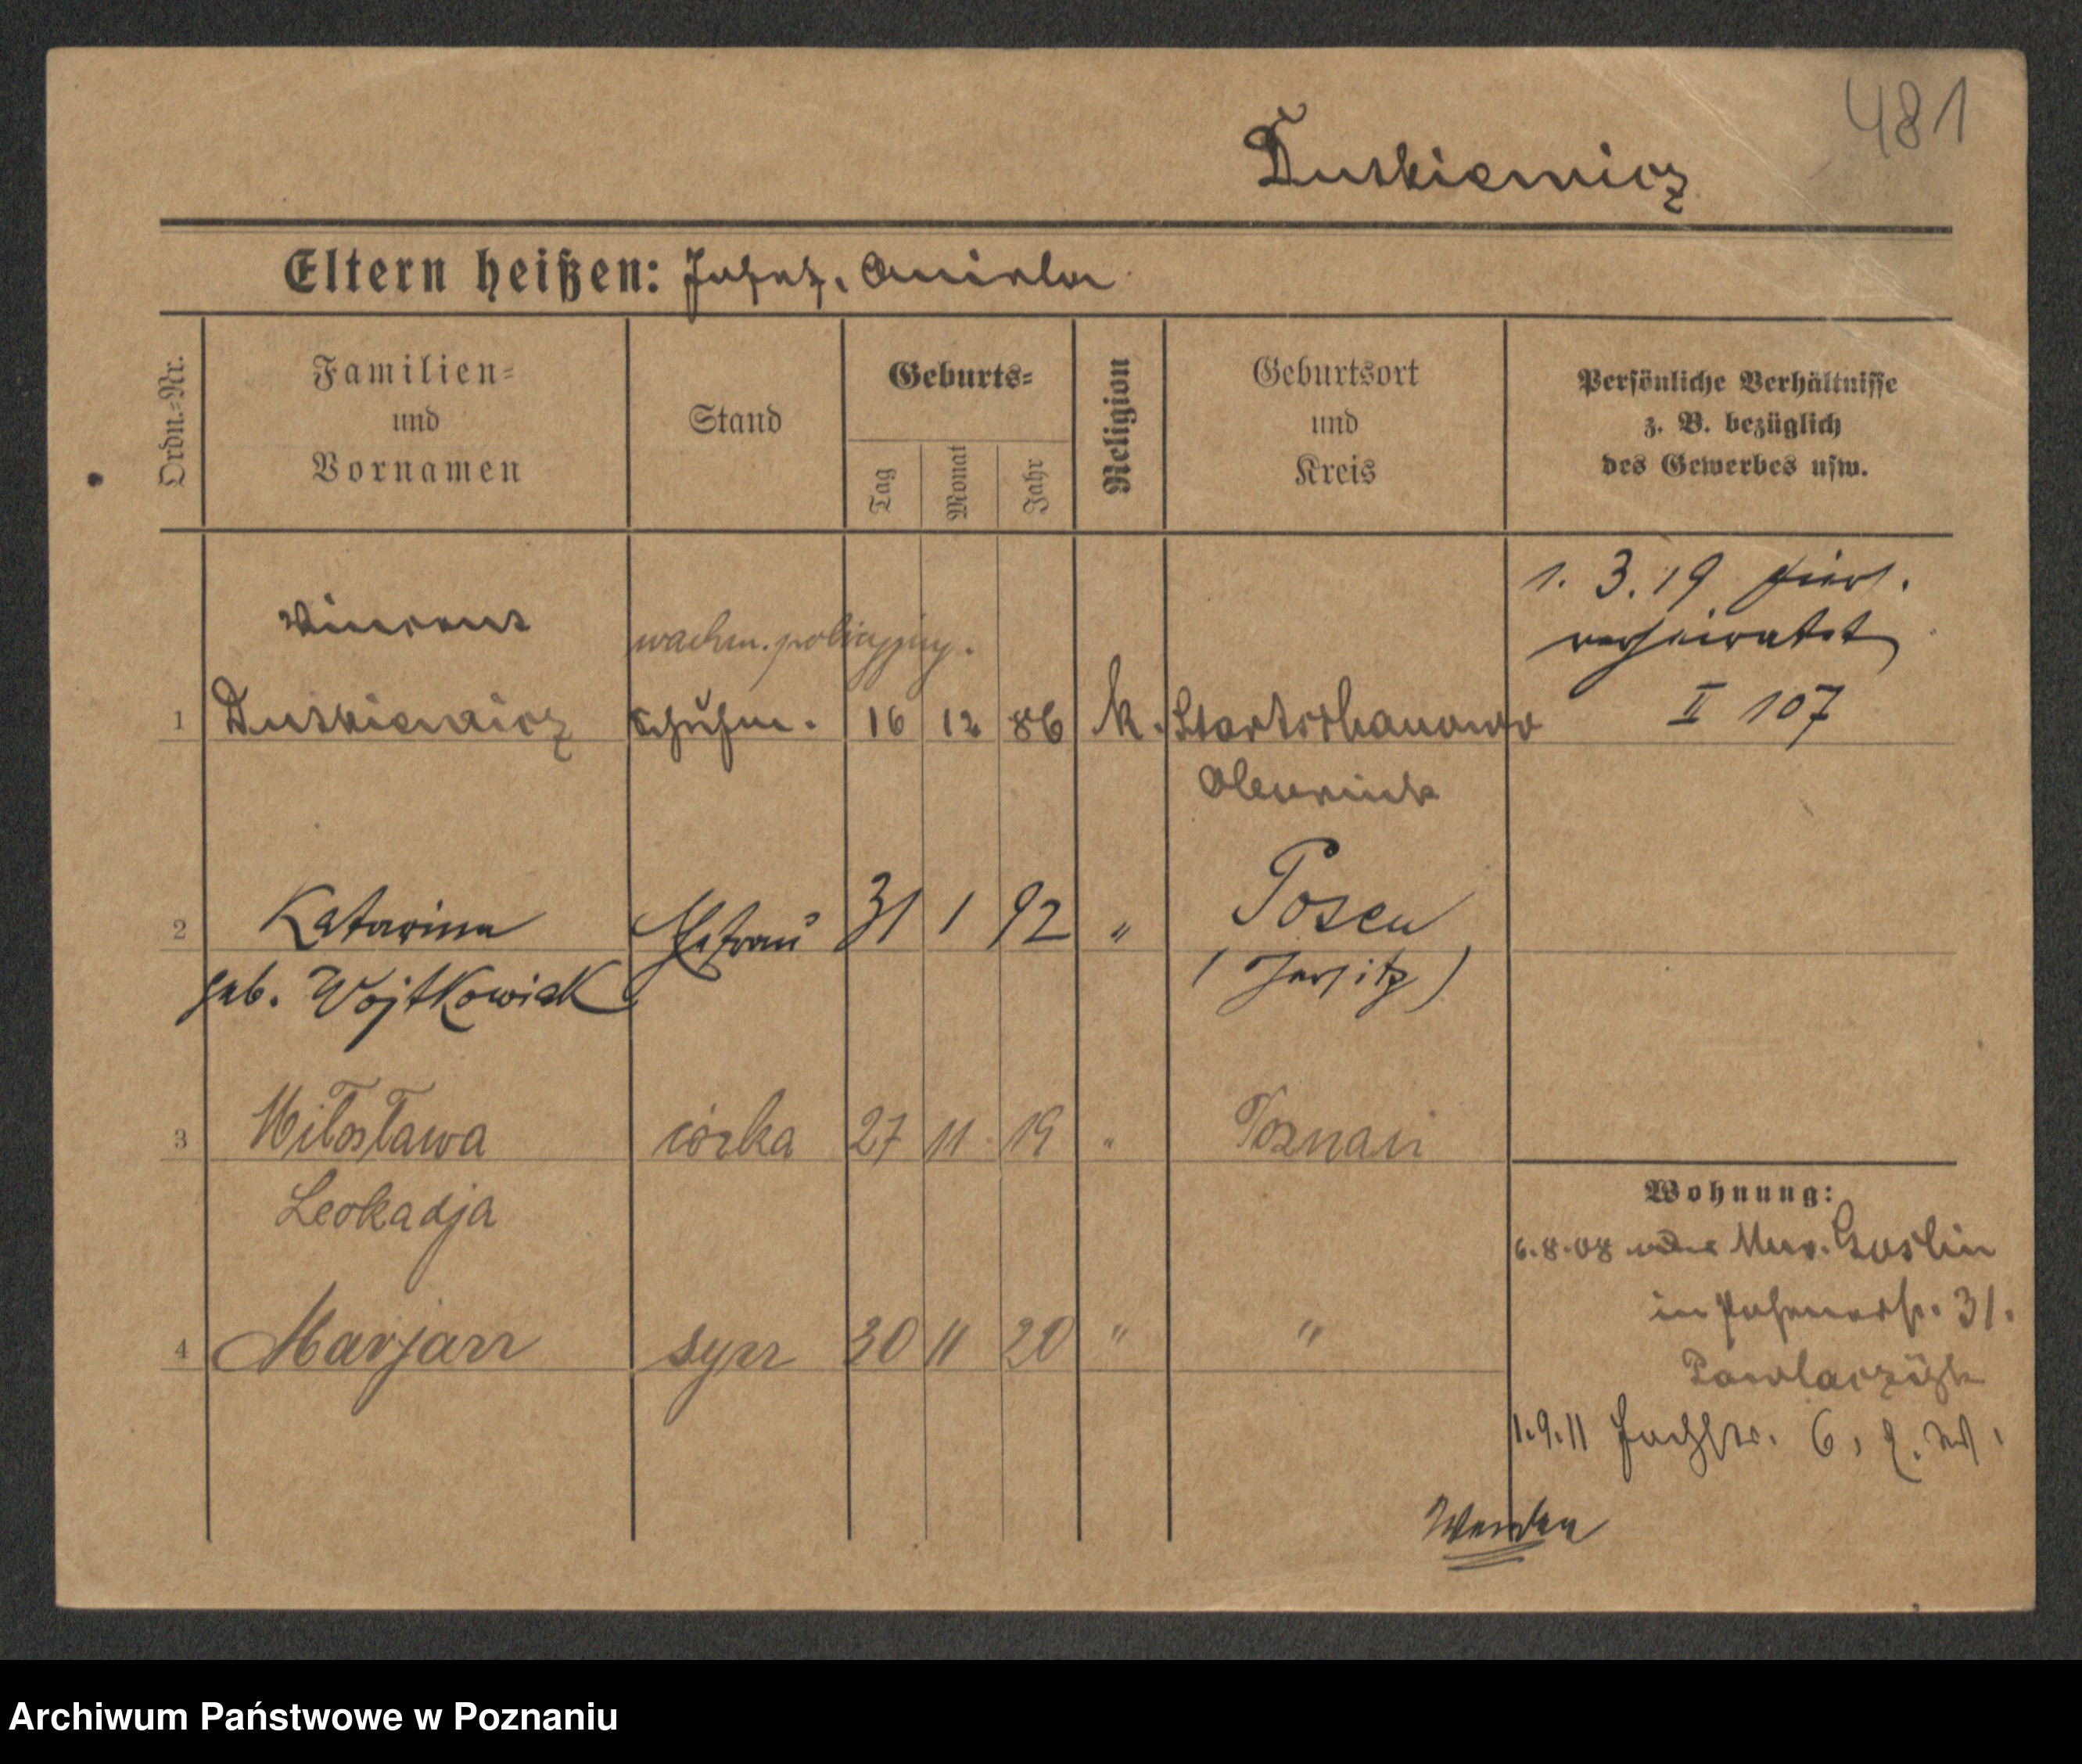 481
Duskiewicz
Eltern heißen: Josef, Aniela
Ordn.=Nr.
Familien=
und
Vornamen
Stand
Geburts=
Tag
Monat
Jahr
Religion
Geburtsort
und
Kreis
Persönliche Verhältnisse
z. B. bezüglich
des Gewerbes usw.
1. 3. 19
verheiratet
II 107
Vincent
wachm. policyjny.
1 Duskiewicz Schuhm. 16 12 86 k.
Obornick
2 Katarina Ehefrau 31 1 92 " Posen
geb. Wojtkowiak (Jersitz)
3 Miłosława córka 27 11 19 " Poznań
Leokadja
4 Marjan syn 30 11 20 " "
Wohnung:
6.8.08 Mur. Goslin
in Posenerstr. 31.
1.9.11 6,
Wenden
Archiwum Państwowe w Poznaniu